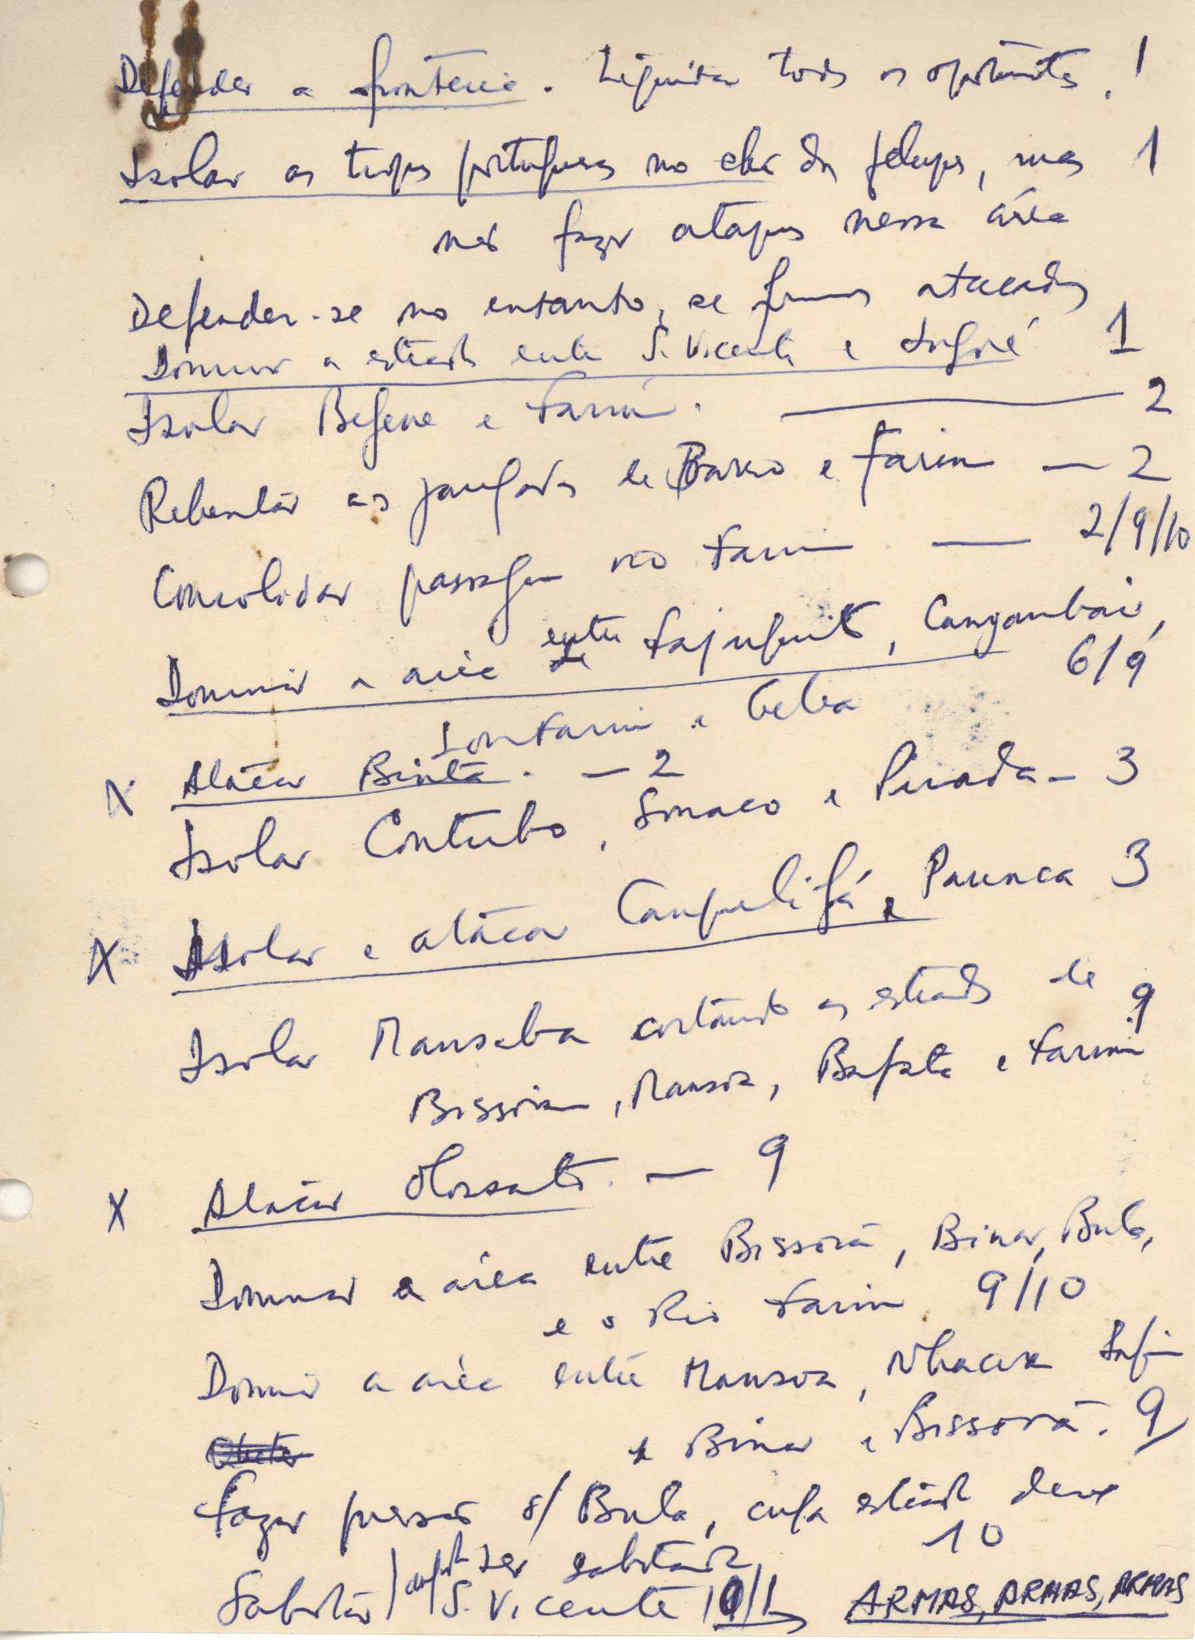 Defender a fronteira. Liquidar todos os oportunistas. 1
Isolar as tropas portuguesas no chão dos felupes, mas 1
não fazer ataques nessa área
Defender-se no entanto, se formos atacados
Dominar a estrada entre S. Vicente e Ingoré 1
Isolar Begene e Farim. — 2
Rebentar as jangadas de Barro e Farim — 2
Consolidar passagem rio Farim — 2/9/10
Dominar a área entre Fajonquito, Canjambari,
6/9
Farim e Geba
X Atacar Binta. — 2
Isolar Contubo, Sonaco e Pirada — 3
X Isolar e atacar Canquelifá e Paunca 3
Isolar Mansaba cortando as estradas de 9
Bissorã, Mansoa, Bafata e Farim
X Atacar Olossato. — 9
Dominar a área entre Bissorã, Binar, Bula,
e o Rio Farim 9/10
Dominar a área entre Mansoa, Nhacra Safim
e Binar e Bissorã. 9
Fazer pressão s/ Bula, cuja estrada deve
ser sabotada 10
Sabotar S. Vicente 10/1 ARMAS, ARMAS, ARMAS